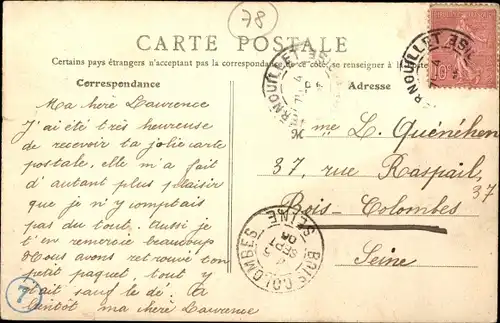 78
CARTE POSTALE
Certains pays étrangers n'acceptant pas la correspondance de ce côté, se renseigner à la Poste
Correspondance
Adresse
Ma chère Laurence
J'ai été très heureuse
de recevoir la jolie carte
postale, elle m'a fait
d'autant plus plaisir
que je n'y comptais
pas du tout. Aussi je
t'en remercie beaucoup
Nous avons retrouvé ton
petit paquet, tout y
était sauf le dé. A
bientôt ma chère Laurence
Mme L. Quénéhen
37, rue Raspail, 37
Bois-Colombes
Seine
10
BOIS-COLOMBES
SEINE
SEPT
7